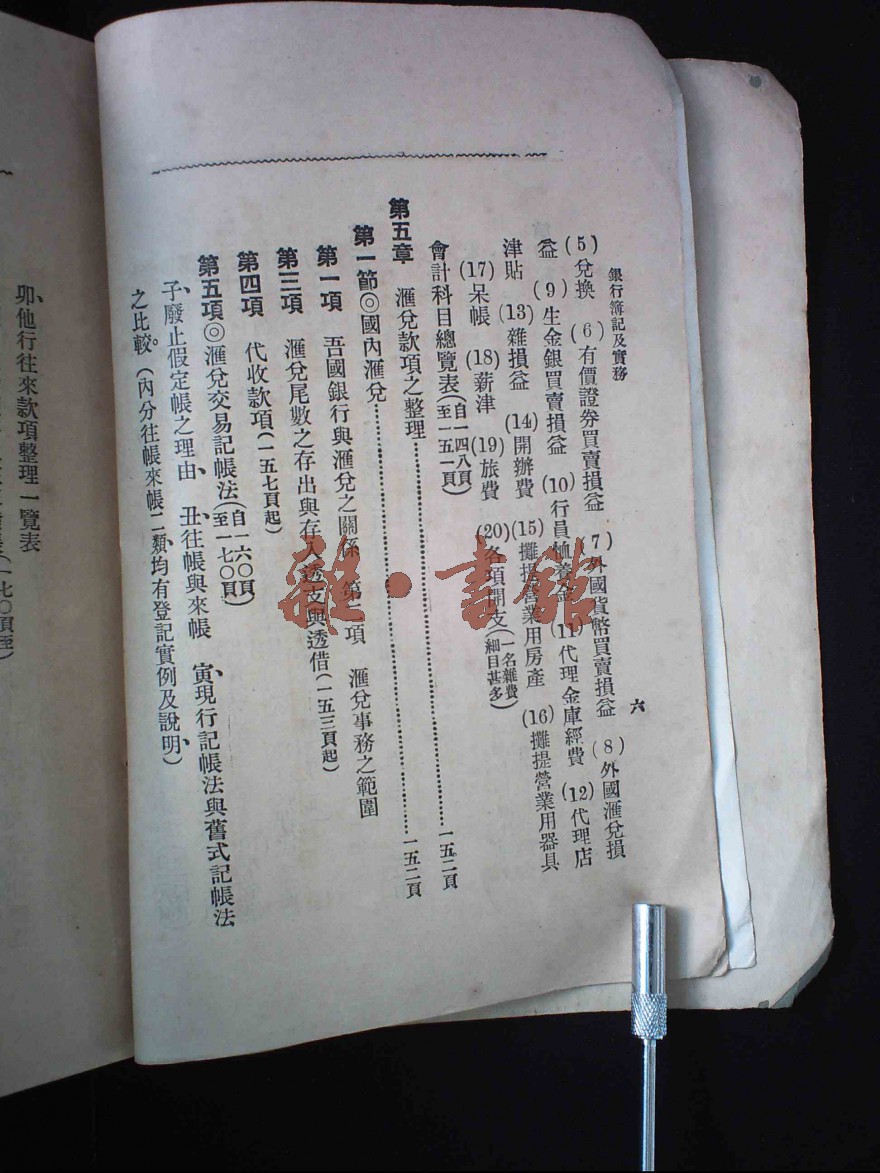 銀行簿記及實務
六
(5)兌換　(6)有價證券買賣損益　(7)外國貨幣買賣損益　(8)外國滙兌損
益　(9)生金銀買賣損益　(10)行員恤養金　(11)代理金庫經費　(12)代理店
津貼　(13)雜損益　(14)開辦費　(15)攤提營業用房產　(16)攤提營業用器具
(17)呆帳　(18)薪津　(19)旅費　(20)各項開支(一名雜費細目甚多)
會計科目總覽表(自一四八頁至一五一頁)
第五章　滙兌款項之整理……一五二頁
第一節◎國內滙兌……一五二頁
第一項　吾國銀行與滙兌之關係　第二項　滙兌事務之範圍
第三項　滙兌尾數之存出與存入透支與透借(一五三頁起)
第四項　代收款項(一五七頁起)
第五項◎滙兌交易記帳法(自一六〇頁至一七〇頁)
子、廢止假定帳之理由、丑、往帳與來帳　寅、現行記帳法與舊式記帳法
之比較。(內分往帳來帳二類、均有登記實例及說明、)
卯、他行往來款項整理一覽表
雜·書館